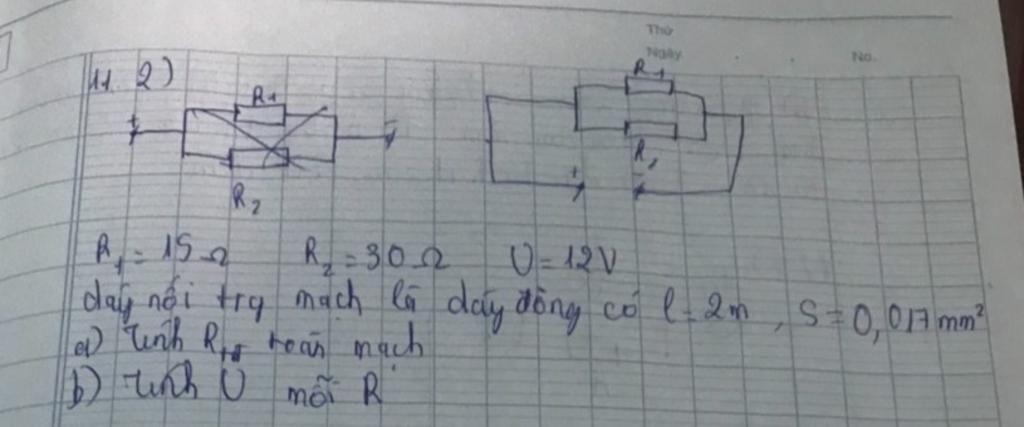 Thứ
Ngày
No.
11.2)
R1
R2
+
-
R1
R2
+
-
R1 = 15Ω R2 = 30Ω U = 12V
dây nối trg mạch là dây đồng có l = 2m, S = 0,017mm²
a) Tính Rtđ toàn mạch
b) Tính U mỗi R